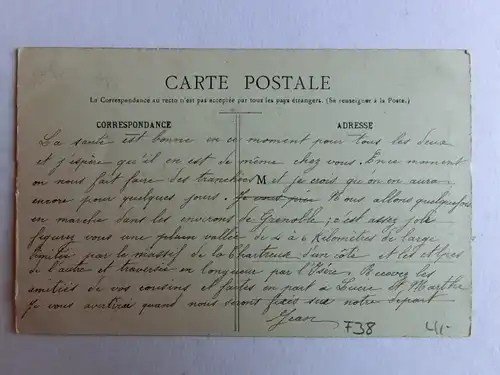 CARTE POSTALE
La Correspondance au recto n'est pas acceptée par tous les pays étrangers. (Se renseigner à la Poste.)
CORRESPONDANCE ADRESSE
La santé est bonne en ce moment pour tous les deux
et j'espère qu'il en est de même chez vous. En ce moment
on nous fait faire des tranchées M et je crois qu'on en aura
encore pour quelques jours. Nous allons quelquefois
en marche dans les environs de Grenoble ; c'est assez joli
figurez vous une plain vallée de 4 à 6 Kilomètres de large
limitée par le massif de la Chartreux d'un côté et les Alpes
de l'autre et traversée en longueur par l'Isère. Recevez les
amitiés de vos cousins et faites en part à Lucie et Marthe
Je vous avertirai quand nous serons fixés sur notre départ
Jean
F38 4,-